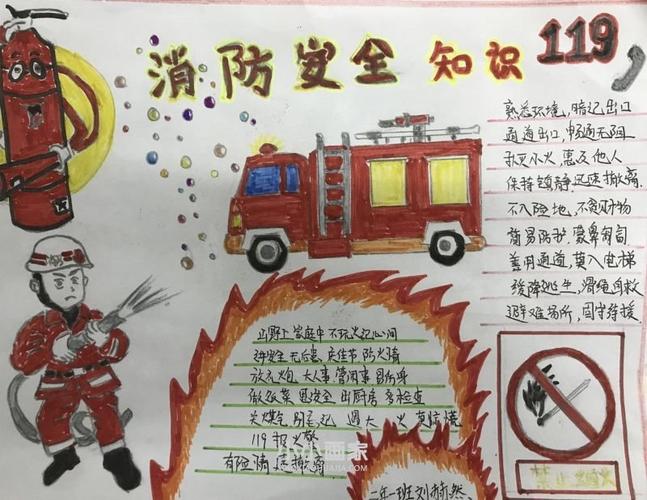 消防安全知识 119
熟悉环境,暗记出口
通道出口,畅通无阻
扑灭小火 惠及他人
保持镇静,迅速撤离
不入险地,不贪财物
简易防护,蒙鼻匍匐
善用通道,莫入电梯
缓降逃生,滑绳自救
避难场所,固守待援
山野上 家庭中 不玩火 记心间
放花炮 大人事 管闲事 易伤身
做饭菜 图安全 出厨房 多检查
关煤气 别忘记 遇大火 莫惊慌
119 报火警
小小画家
二年一班 刘
禁止烟火